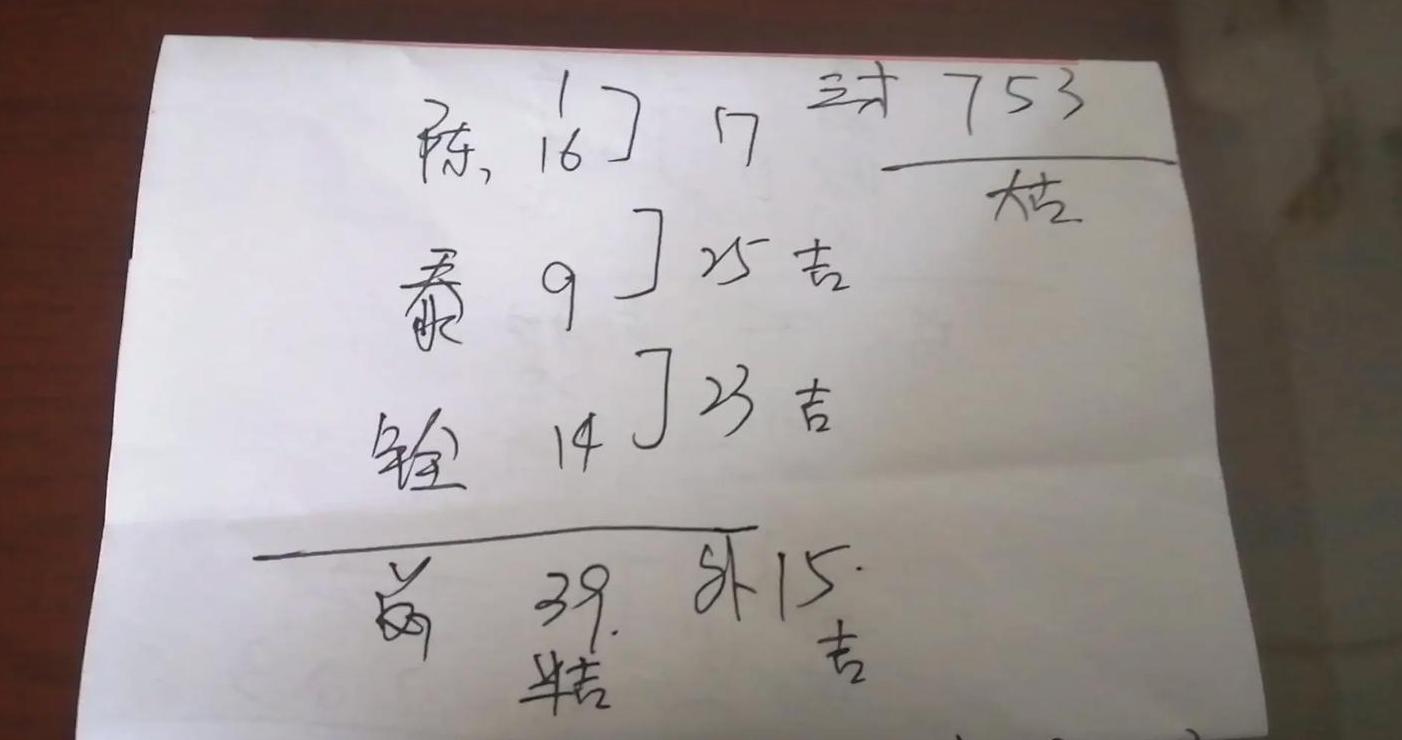 1
陈, 16 ] 17 三才 753
大吉
泰 9 ] 25 吉
铨 14 ] 23 吉
总 39. 外15.
半吉 吉